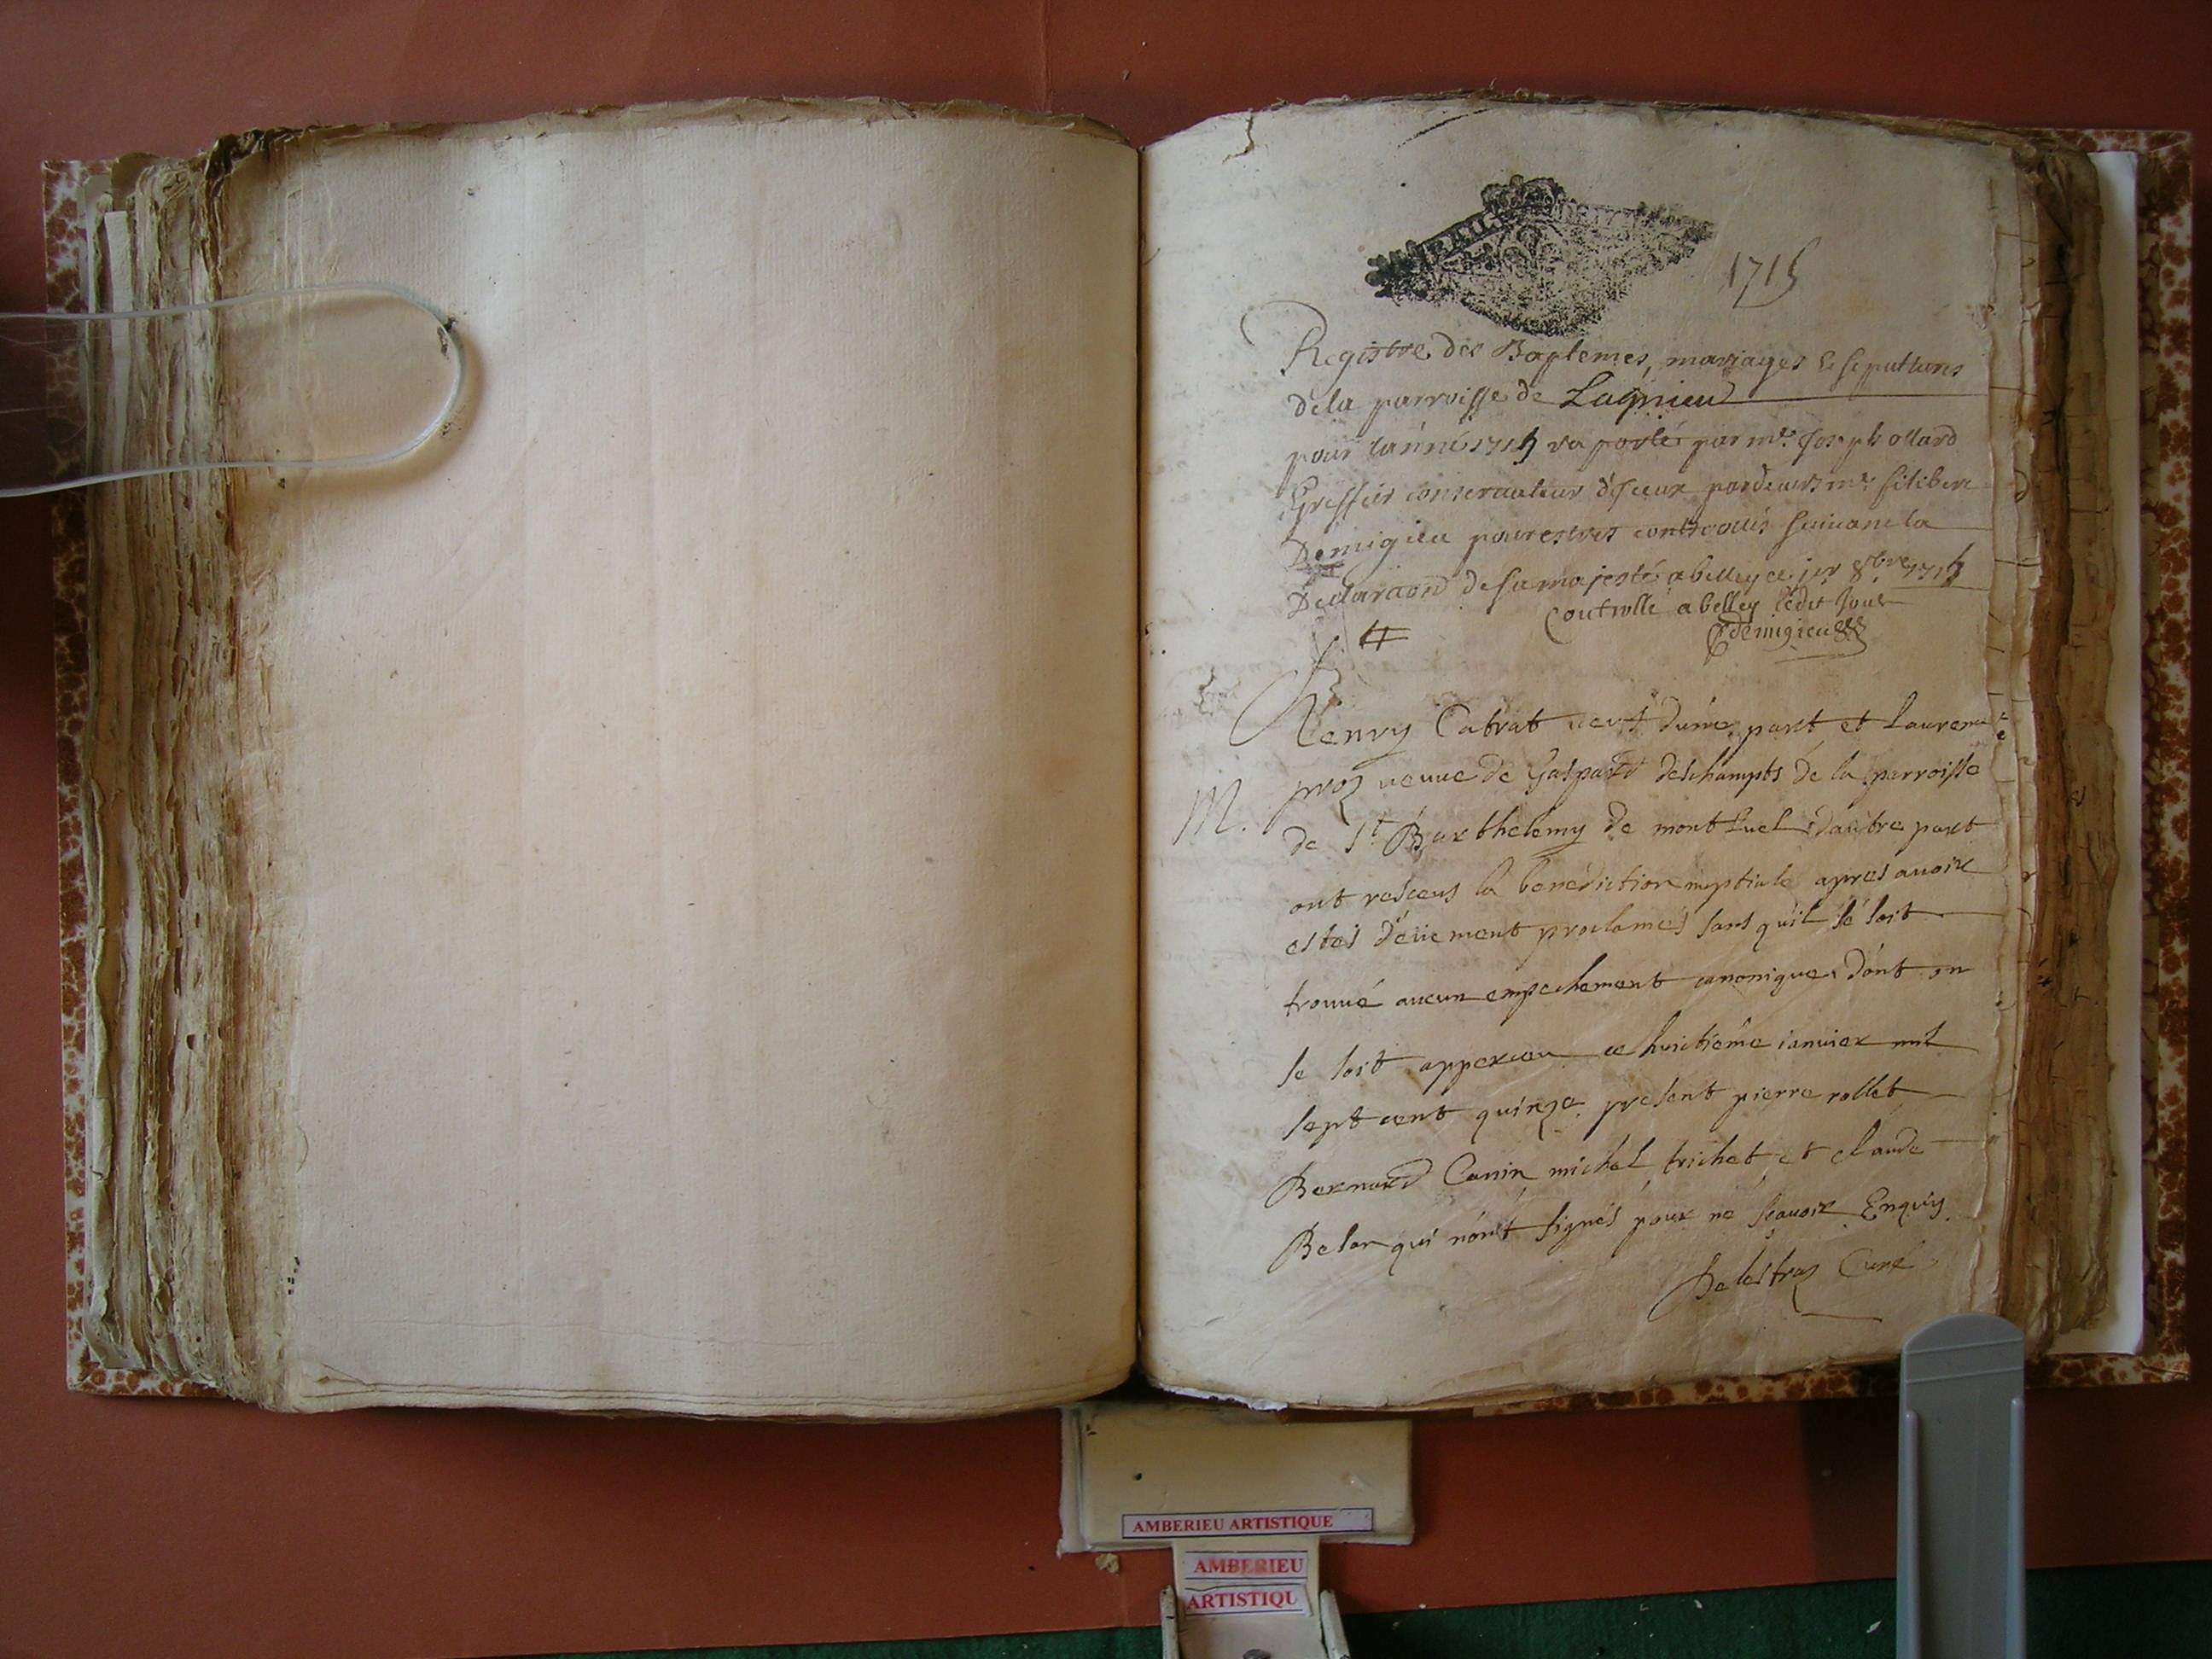 1715
Registre des Baptemes, mariages & sepultures
de la parroisse de Lagnieu
pour l'année 1715 par mre Joseph ollard
Greffier conservateur d'iceux pardevant mre filibert
Demigieu pour estres controllés suivant la
Declaraon de sa majesté a belley ce 8bre
Controllé a belley ledit Jour
Demigieu
Henry Cabrat veuf dune part et Laurence
M. proz veuve de Gaspard deschampts de la parroisse
de St Barthelemy de mont Luel d'autre part
ont resceus la benediction nuptiale apres avoir
estés deüement proclamés sans quil se soit
trouué aucun empechement canonique dont on
se soit apperceu ce huictiême ianuier mil
sept cent quinze present pierre rollet
Bernard Canin michel trichet et claude
Belon qui n'ont signés pour ne sçauoir Enquis
Delestraz Curé
AMBERIEU ARTISTIQUE
AMBERIEU
ARTISTIQU